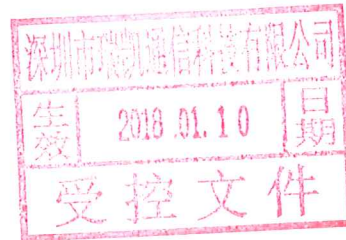 深圳市瑞凯通信科技有限公司
生效 2018.01.10 日期
受控文件